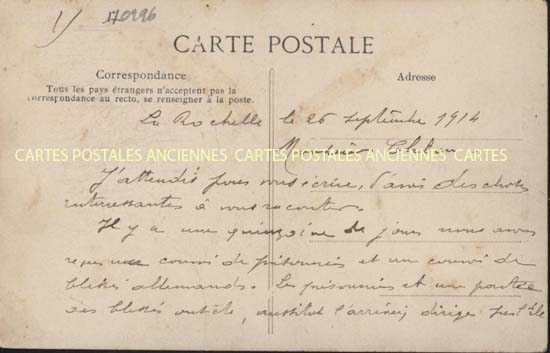 1/ 170996
CARTE POSTALE
Correspondance
Adresse
Tous les pays étrangers n'acceptent pas la
correspondance au recto, se renseigner à la poste.
La Rochelle le 26 septembre 1914
Monsieur
CARTES POSTALES ANCIENNES CARTES POSTALES ANCIENNES CARTES
J'attendis pour vous écrire, d'avoir des choses
interressantes à vous raconter.
Il y a une quinzaine de jours nous avons
reçu un convoi de prisonniers et un convoi de
blessés allemands. Les prisonniers et une partie
des blessés ont été, aussitot l'arrivée, diriges sur l'île